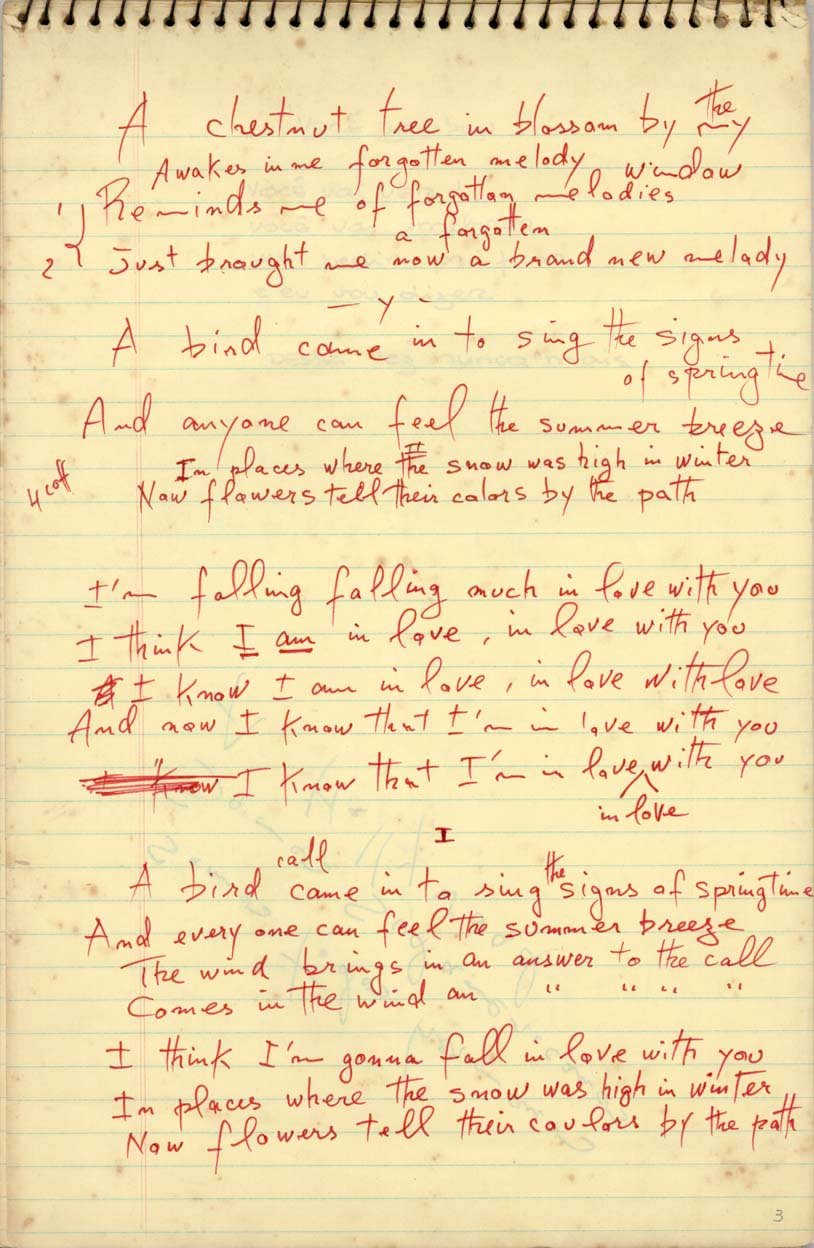 the
A chestnut tree in blossom by my
window
Awakes in me forgotten melody
1 Reminds me of forgotten melodies
a forgotten
2 Just brought me now a brand new melody
— y -
A bird came in to sing the signs
of springtime
And anyone can feel the summer breeze
In places where the snow was high in winter
Now flowers tell their colors by the path
I'm falling falling much in love with you
I think I am in love, in love with you
I know I am in love, in love with love
And now I know that I'm in love with you
I know I know that I'm in love, with you
in love
I
call
the
A bird came in to sing signs of springtime
And every one can feel the summer breeze
The wind brings in an answer to the call
Comes in the wind an " " " "
I think I'm gonna fall in love with you
In places where the snow was high in winter
Now flowers tell their coulors by the path
3